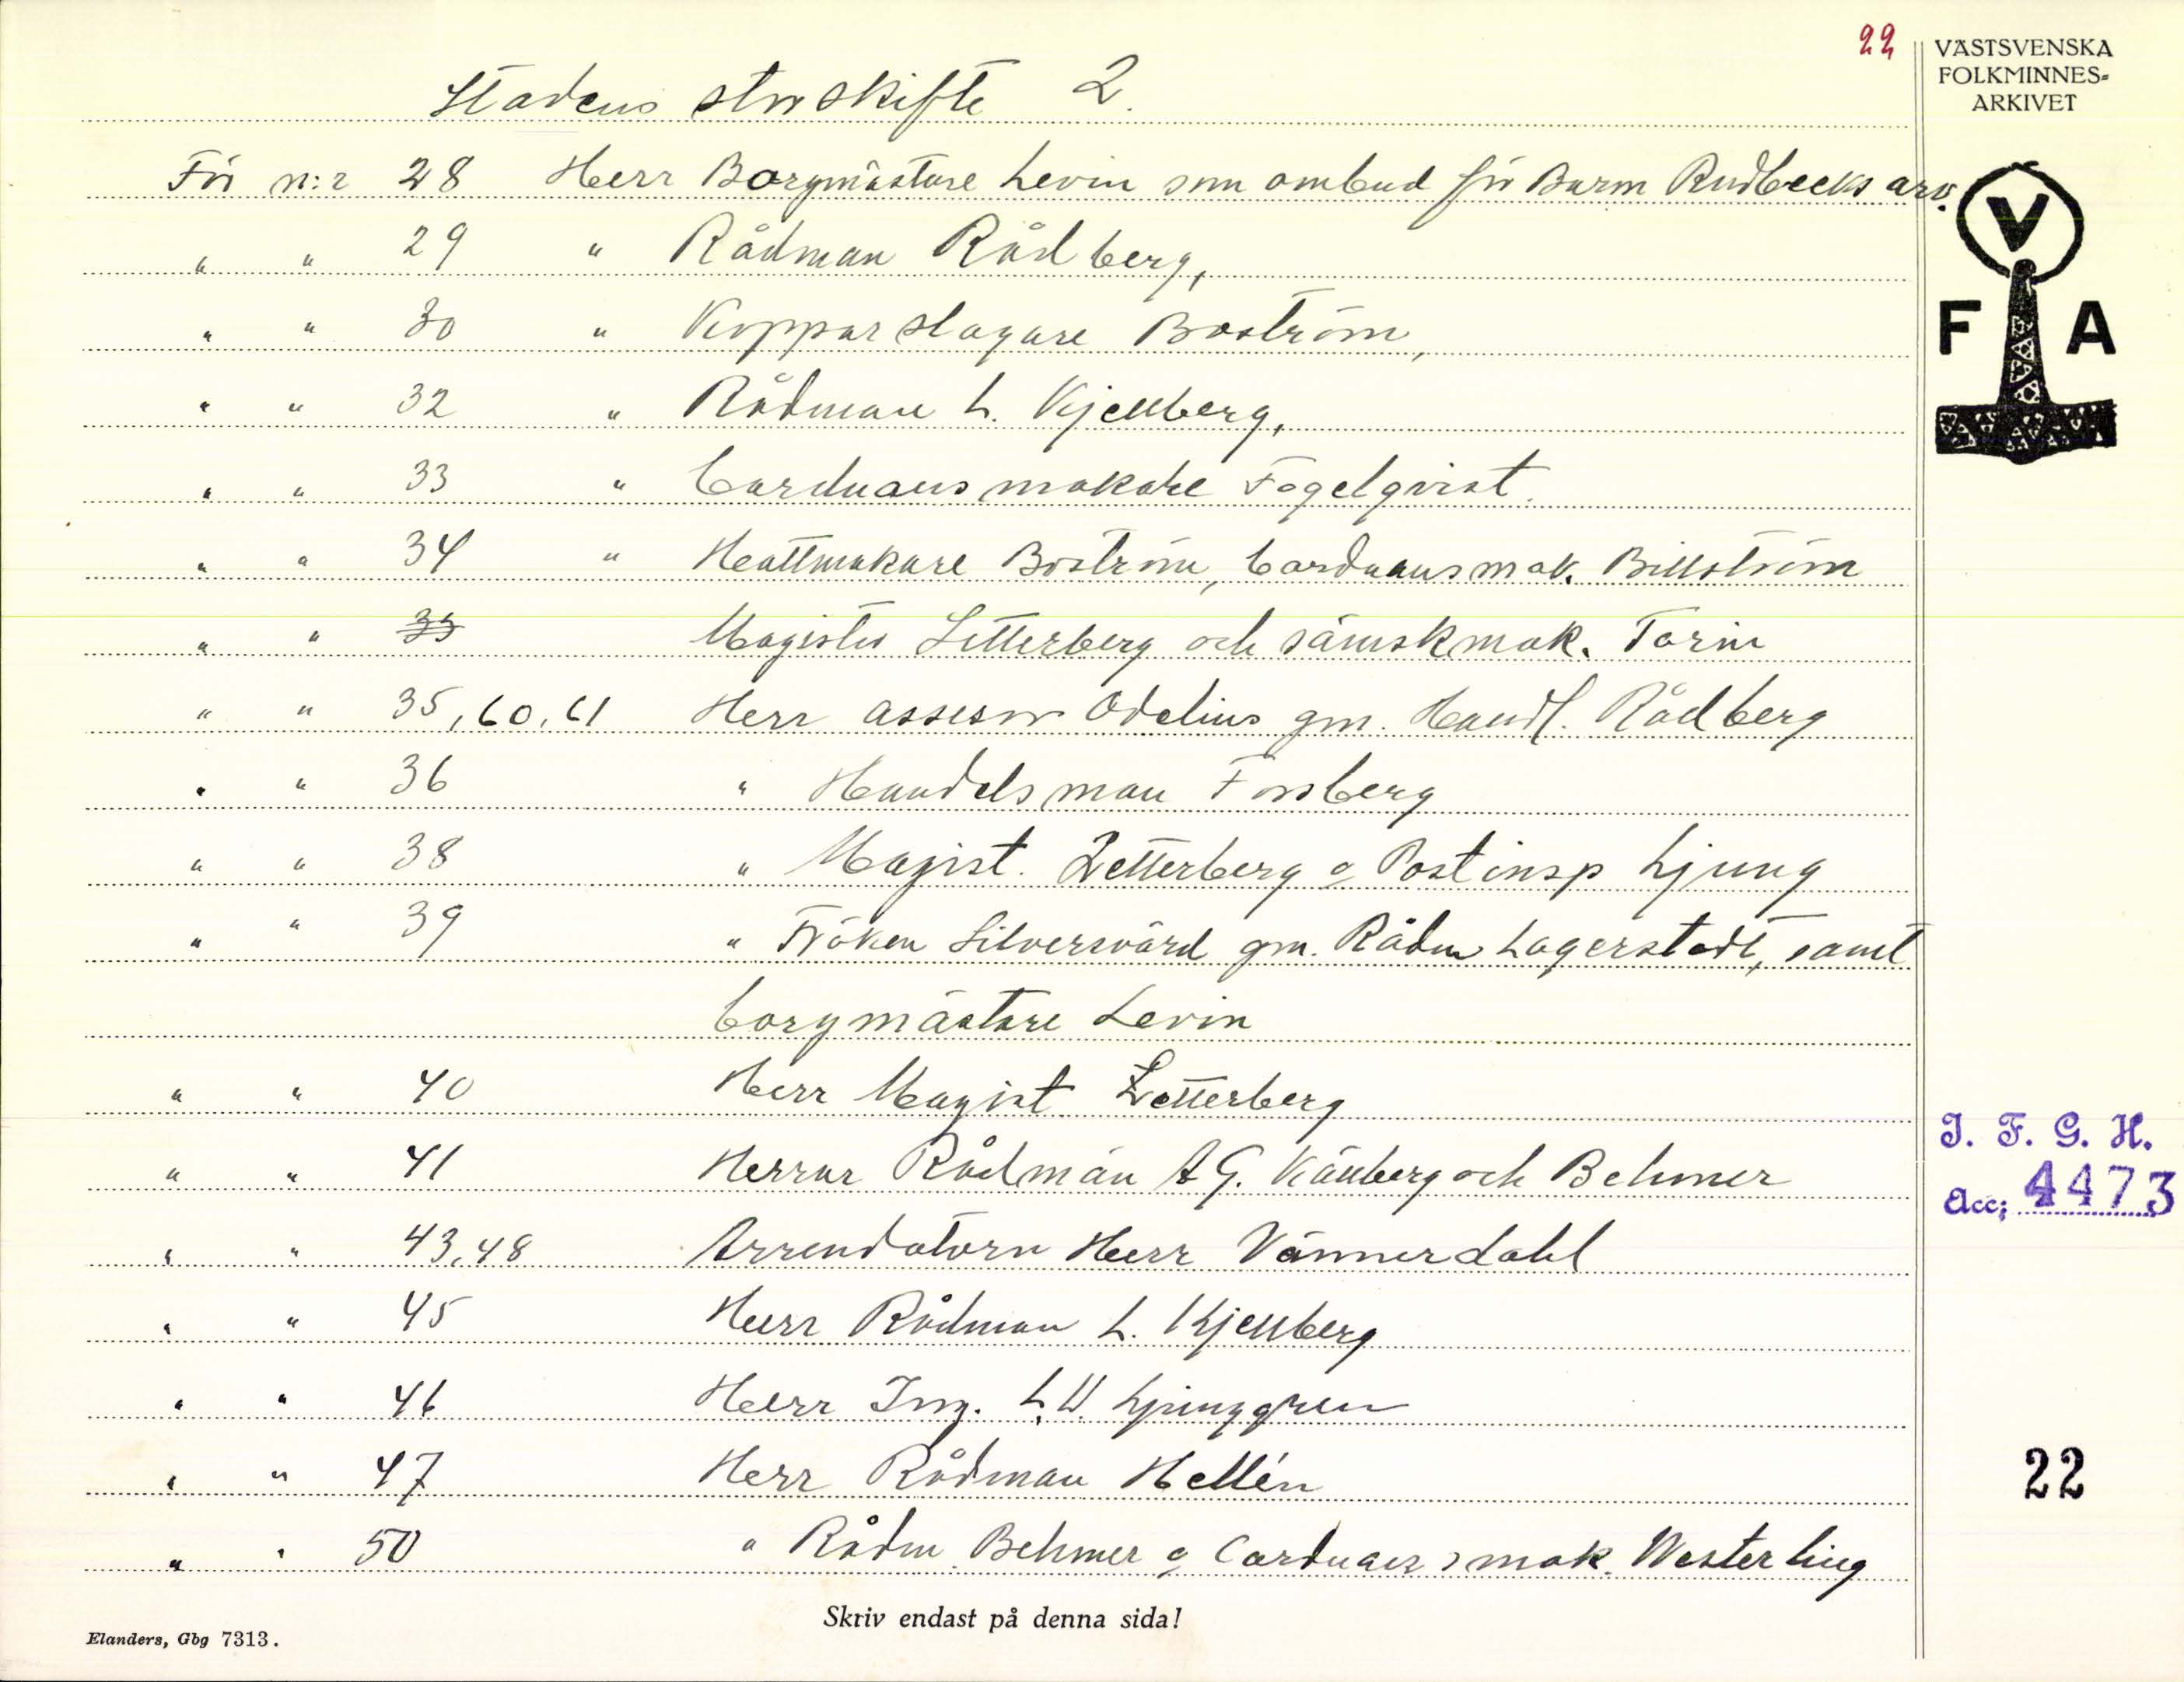 22
VÄSTSVENSKA
FOLKMINNES-
ARKIVET
Stadens storskifte 2.
För n:r 28 Herr Borgmästare Levin som ombud för Burm Rudbecks arv.
" " 29 " Rådman Rådberg,
" " 30 " Kopparslagare Boström,
" " 32 " Rådman L. Kjellberg,
" " 33 " Carduansmakare Fogelqvist.
" " 34 " Hattmakare Boström, Carduansmak. Billström
" " 35 Magister Zetterberg och sämskmak. Torin
" " 35, 60, 61 Herr assessor Odelius gm. Handl. Rådberg
" " 36 " Handelsman Forsberg
" " 38 " Magist. Zetterberg o Postinsp Ljung
" " 39 " Fröken Silversvärd gm. Rådm Lagerstedt, samt
borgmästare Levin
" " 40 Herr Magist Zetterberg
" " 41 Herrar Rådmän A G. Källberg och Behmer
" " 43, 48 Arrendatorn Herr Vännerdahl
" " 45 Herr Rådman L. Kjellberg
" " 46 Herr Ing. L. W. Ljunggren
" " 47 Herr Rådman Hellén
" " 50 " Rådm. Behmer o Carduansmak. Westerling
V
F A
I. F. G. H.
Acc; 4473
22
Skriv endast på denna sida!
Elanders, Gbg 7313.